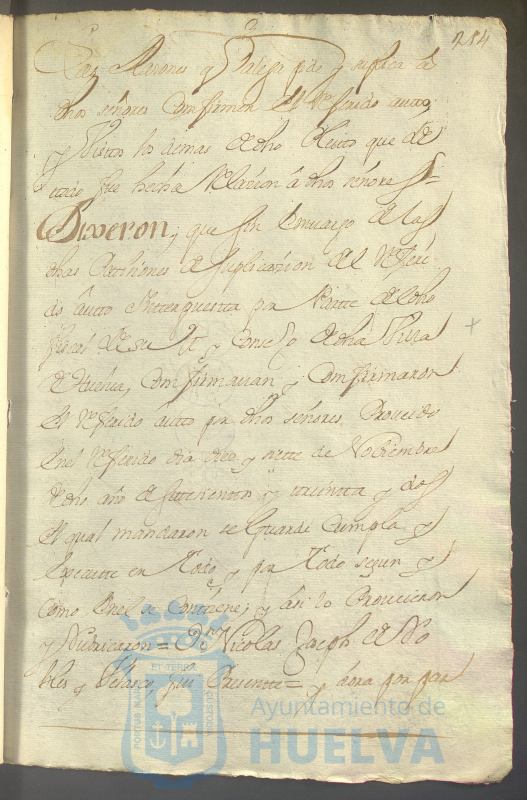 214
Razones q Balego pide y suplica á
dhos señores Confirmen el Referido auto,
y Vistos los demas de dho Pleito que de
todo fue hecha Relacion á dhos señores =
Dixeron, que sin Embargo de las
dhas Peticiones de suplicazion de el Referi-
do auto Interpuesta por Parte de dho
fiscal de su M. y Conzejo de dha Villa
de Huelva, Confirmavan, y Confirmaron
el Referido auto por dhos señores Proveido
en el Referido dia diez y siete de Nobiembre
de dho año de setecientos y treintta y dos
el qual mandaron se Guarde Cumpla y
Execute en Todo y por Todo segun y
como en el se Contiene; y asi lo Proveieron
y Rubricaron = Dn. Nicolas Joseph de Ro
bles y Velasco, fui Presente = y aora por par
ET TERRAE
PORTUS MARIS
CUSTODIA
Ayuntamiento de
HUELVA